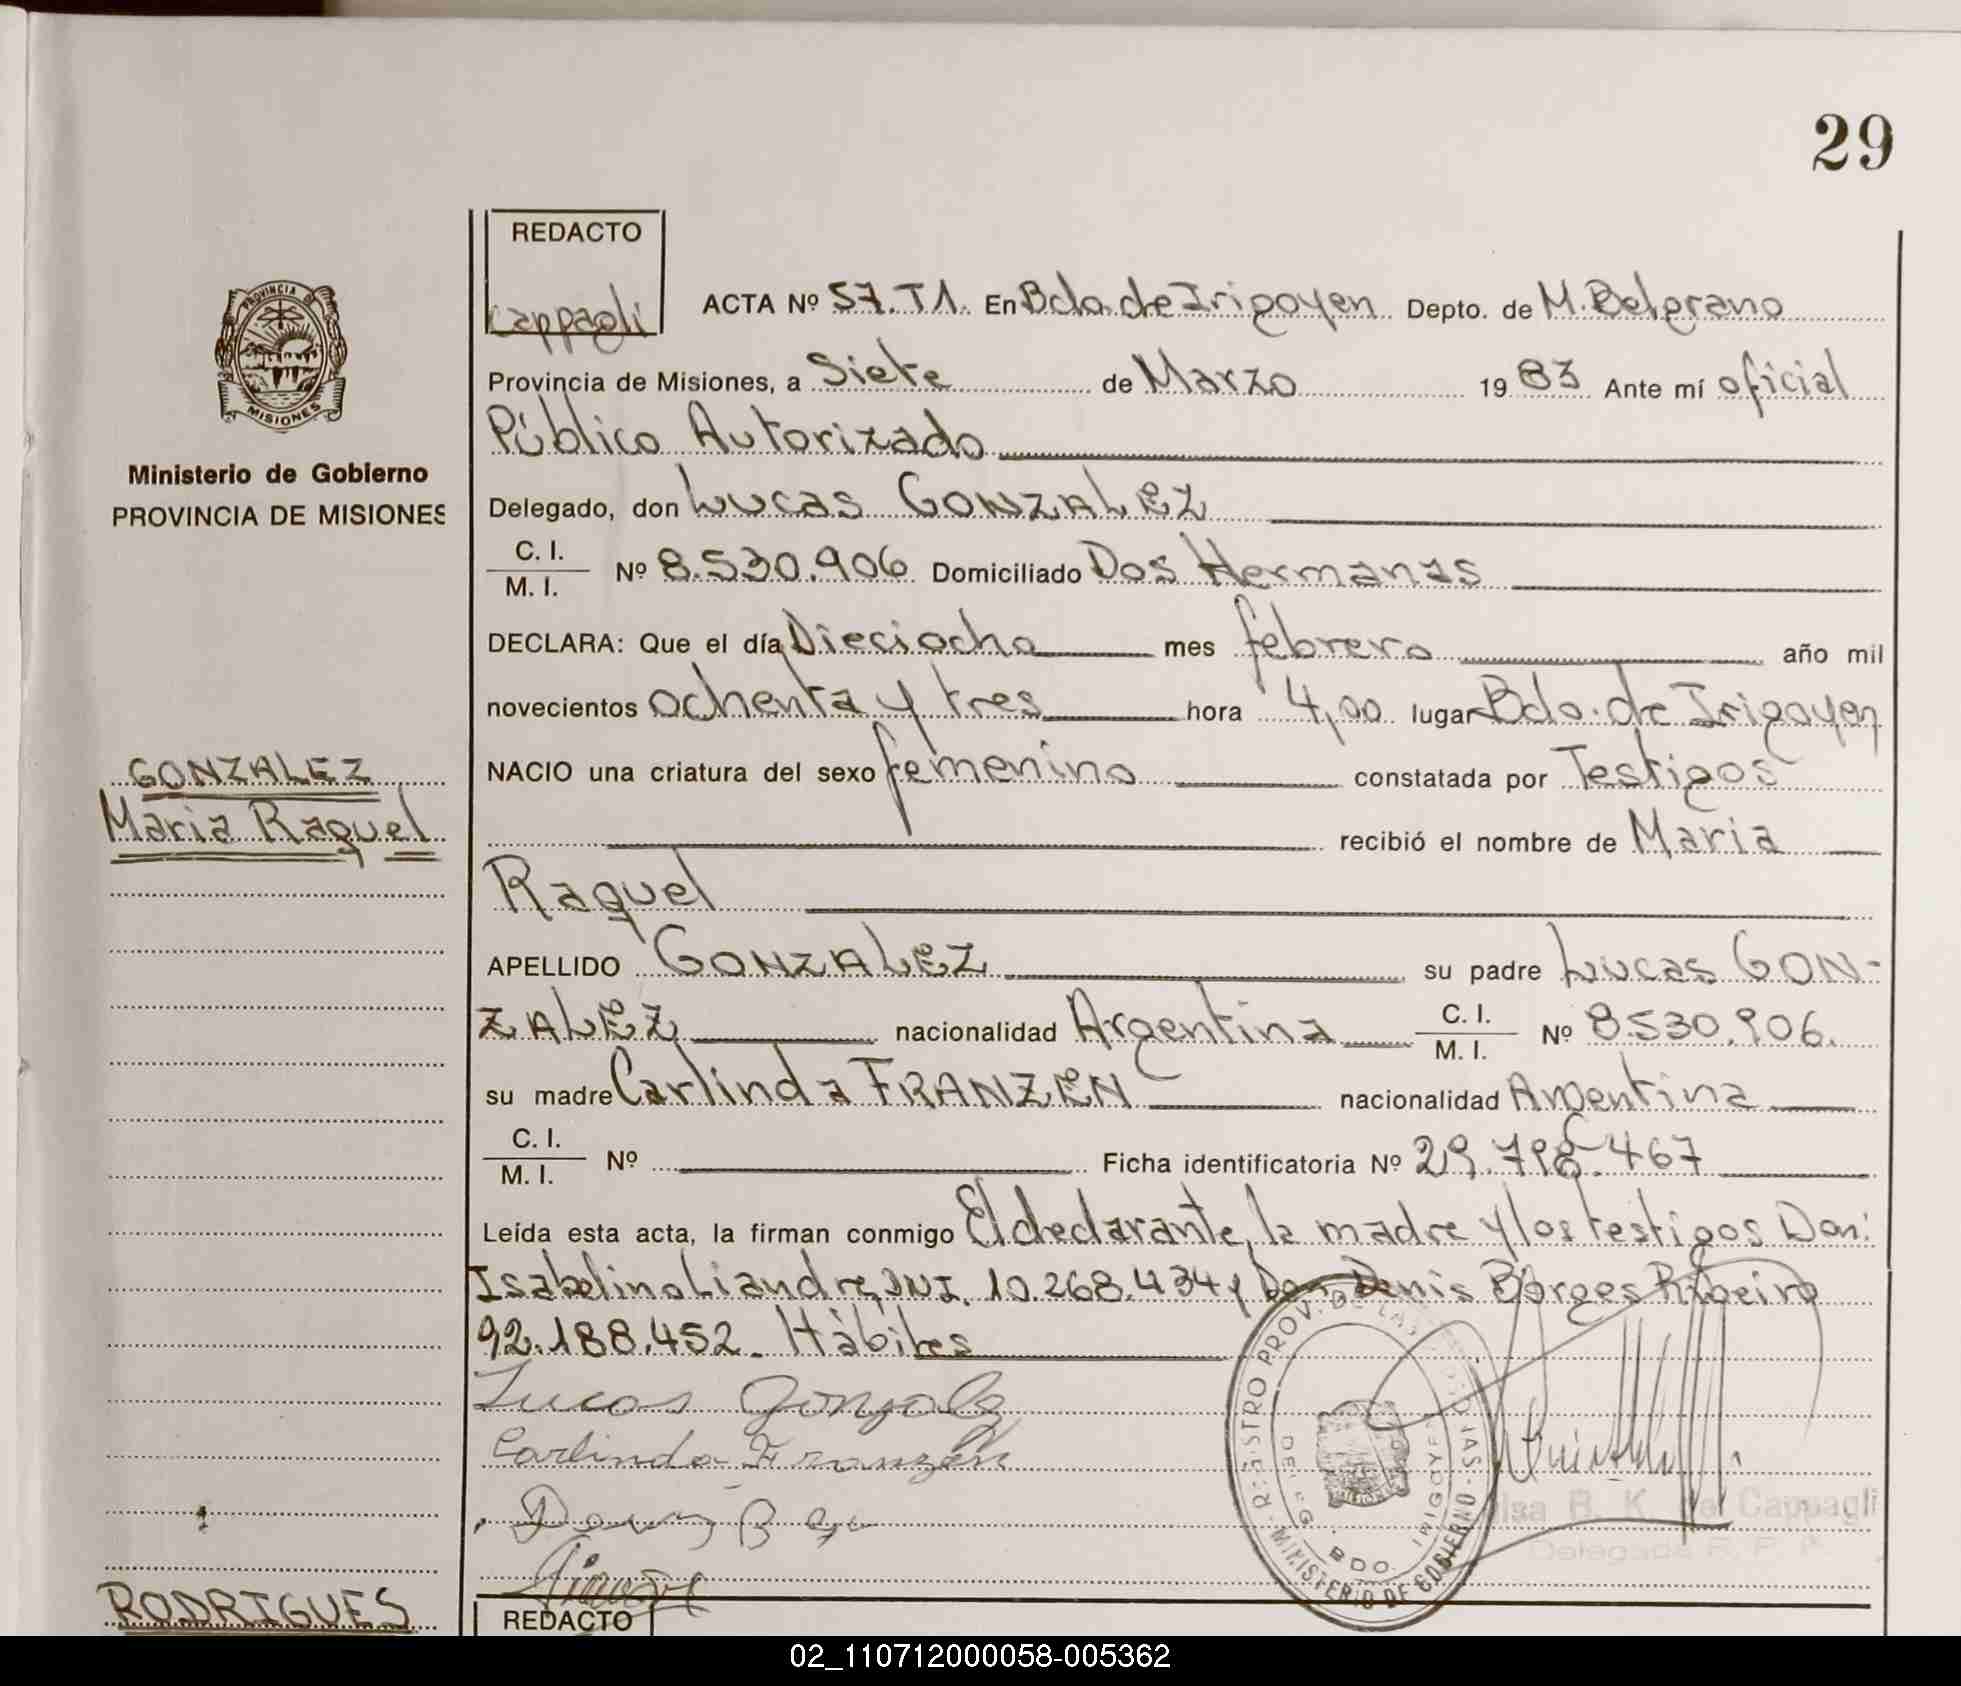 29
REDACTO
Cappagli
PROVINCIA DE
MISIONES
Ministerio de Gobierno
PROVINCIA DE MISIONES
ACTA Nº 57. T1. En Bdo. de Irigoyen Depto. de M. Belgrano
Provincia de Misiones, a Siete de Marzo 19 83 Ante mí oficial
Público Autorizado
Delegado, don Lucas GONZALEZ
C. I.
M. I. Nº 8.530.906 Domiciliado Dos Hermanas
DECLARA: Que el día Dieciocho mes febrero año mil
novecientos ochenta y tres hora 4,00 lugar Bdo. de Irigoyen
GONZALEZ
Maria Raquel
NACIO una criatura del sexo femenino constatada por Testigos
recibió el nombre de Maria
Raquel
APELLIDO GONZALEZ su padre Lucas GON-
ZALEZ nacionalidad Argentina C. I.
M. I. Nº 8.530.906.
su madre Carlinda FRANZEN nacionalidad Argentina
C. I.
M. I. Nº Ficha identificatoria Nº 29.798.467
Leída esta acta, la firman conmigo El declarante, la madre y los testigos Don:
Isabelino Liandre, DNI. 10.268.434 y Don Denis Borges Ribeiro
92.188.452. Hábiles
Lucas Gonzalez
Carlinda Franzen
MINISTERIO DE GOBIERNO
BDO.
B. K. de Cappagli
Delegada R. P. P.
RODRIGUES
REDACTO
02_110712000058-005362